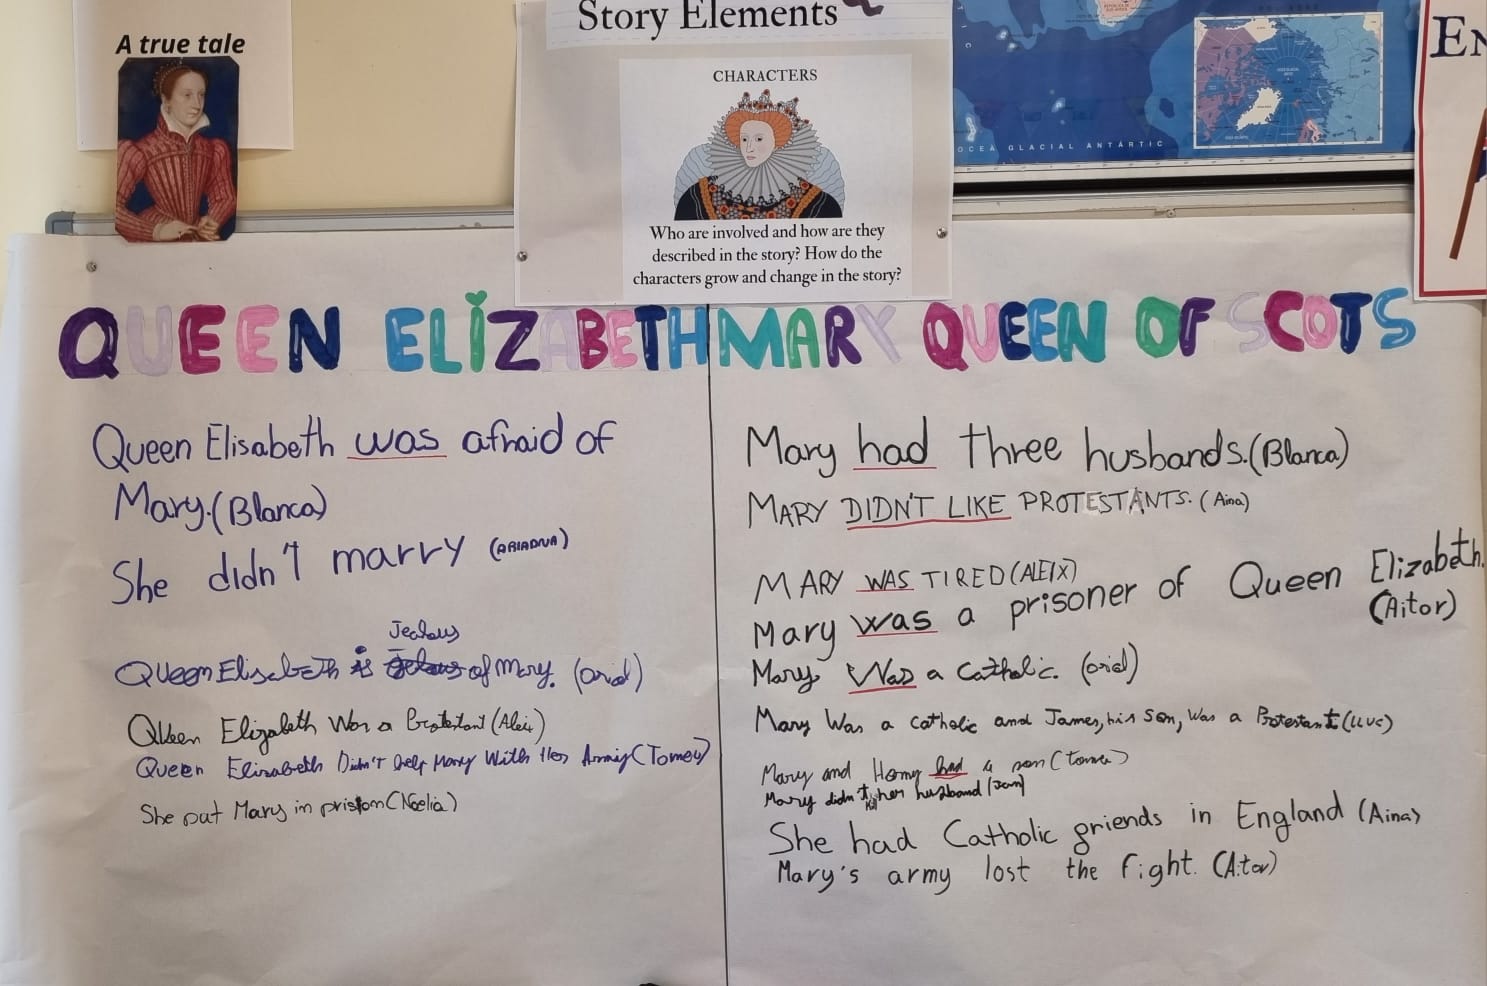 A true tale
Story Elements
CHARACTERS
Who are involved and how are they
described in the story? How do the
characters grow and change in the story?
OCEÀ GLACIAL ANTÀRTIC
EN
QUEEN ELIZABETH
Queen Elisabeth was afraid of
Mary. (Blanca)
She didn't marry (ARIADNA)
Jealous
Queen Elisabeth is of Mary. (oriol)
Queen Elizabeth Was a Protestant (Aleix)
Queen Elisabeth Didn't help Mary With Her Army (Tomeu)
She put Mary in prision (Noelia)
MARY QUEEN OF SCOTS
Mary had three husbands. (Blanca)
MARY DIDN'T LIKE PROTESTANTS. (Aina)
MARY WAS TIRED (ALEIX)
Mary was a prisoner of Queen Elizabeth.
(Aitor)
Mary Was a Catholic. (oriol)
Mary Was a catholic and James, his son, Was a Protestant (LLUC)
Mary and Henry had a son (tomeu)
Mary didn't kill her husband (Joan)
She had Catholic friends in England (Aina)
Mary's army lost the fight. (Aitor)